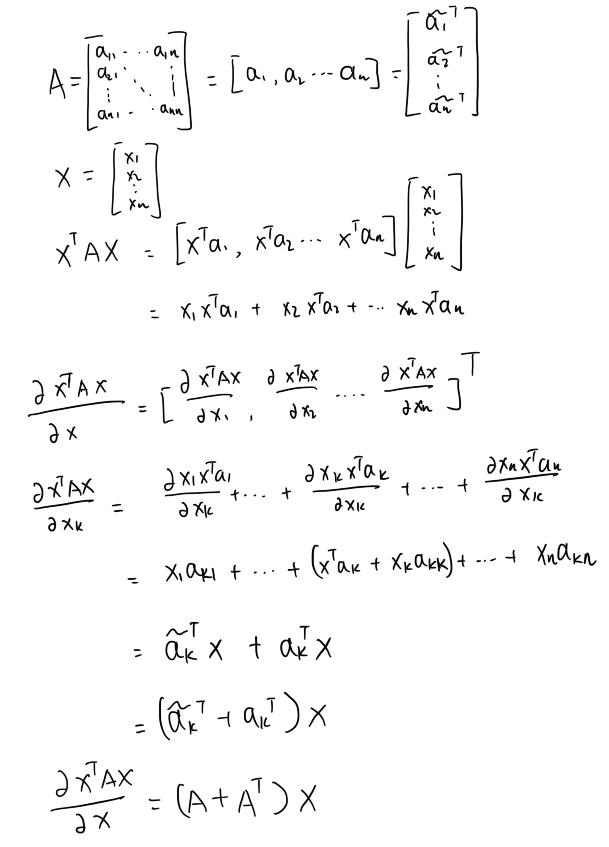 A = [a₁₁ ⋯ a₁ₙ; a₂₁ ⋱ ⋮; ⋮; aₙ₁ ⋯ aₙₙ] = [a₁, a₂ ⋯ aₙ] = [ã₁ᵀ; ã₂ᵀ; ⋮; ãₙᵀ]
x = [x₁; x₂; ⋮; xₙ]
xᵀAx = [xᵀa₁, xᵀa₂ ⋯ xᵀaₙ] [x₁; x₂; ⋮; xₙ]
= x₁xᵀa₁ + x₂xᵀa₂ + ⋯ xₙxᵀaₙ
∂xᵀAx/∂x = [∂xᵀAx/∂x₁, ∂xᵀAx/∂x₂ ⋯ ∂xᵀAx/∂xₙ]ᵀ
∂xᵀAx/∂xₖ = ∂x₁xᵀa₁/∂xₖ + ⋯ + ∂xₖxᵀaₖ/∂xₖ + ⋯ + ∂xₙxᵀaₙ/∂xₖ
= x₁aₖ₁ + ⋯ + (xᵀaₖ + xₖaₖₖ) + ⋯ + xₙaₖₙ
= ãₖᵀx + aₖᵀx
= (ãₖᵀ + aₖᵀ)x
∂xᵀAx/∂x = (A + Aᵀ)x